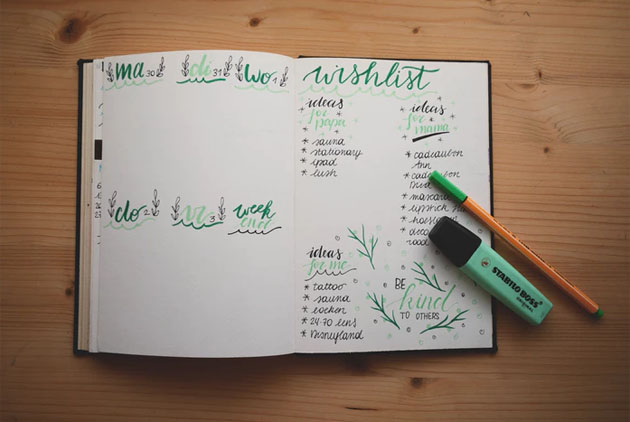 ma 30
di 31
wo 1
do 2
vr 3
week
end
wishlist
ideas
for
papa
* sauna
* stationary
* ipad
* lush
ideas
for
mama
* cadeaubon
* cadeaubon
* mascara
* lipstick
ideas
for me
* tattoo
* sauna
* boeken
* 24-70 lens
* Disneyland
BE
kind
TO OTHERS
STABILO BOSS
ORIGINAL